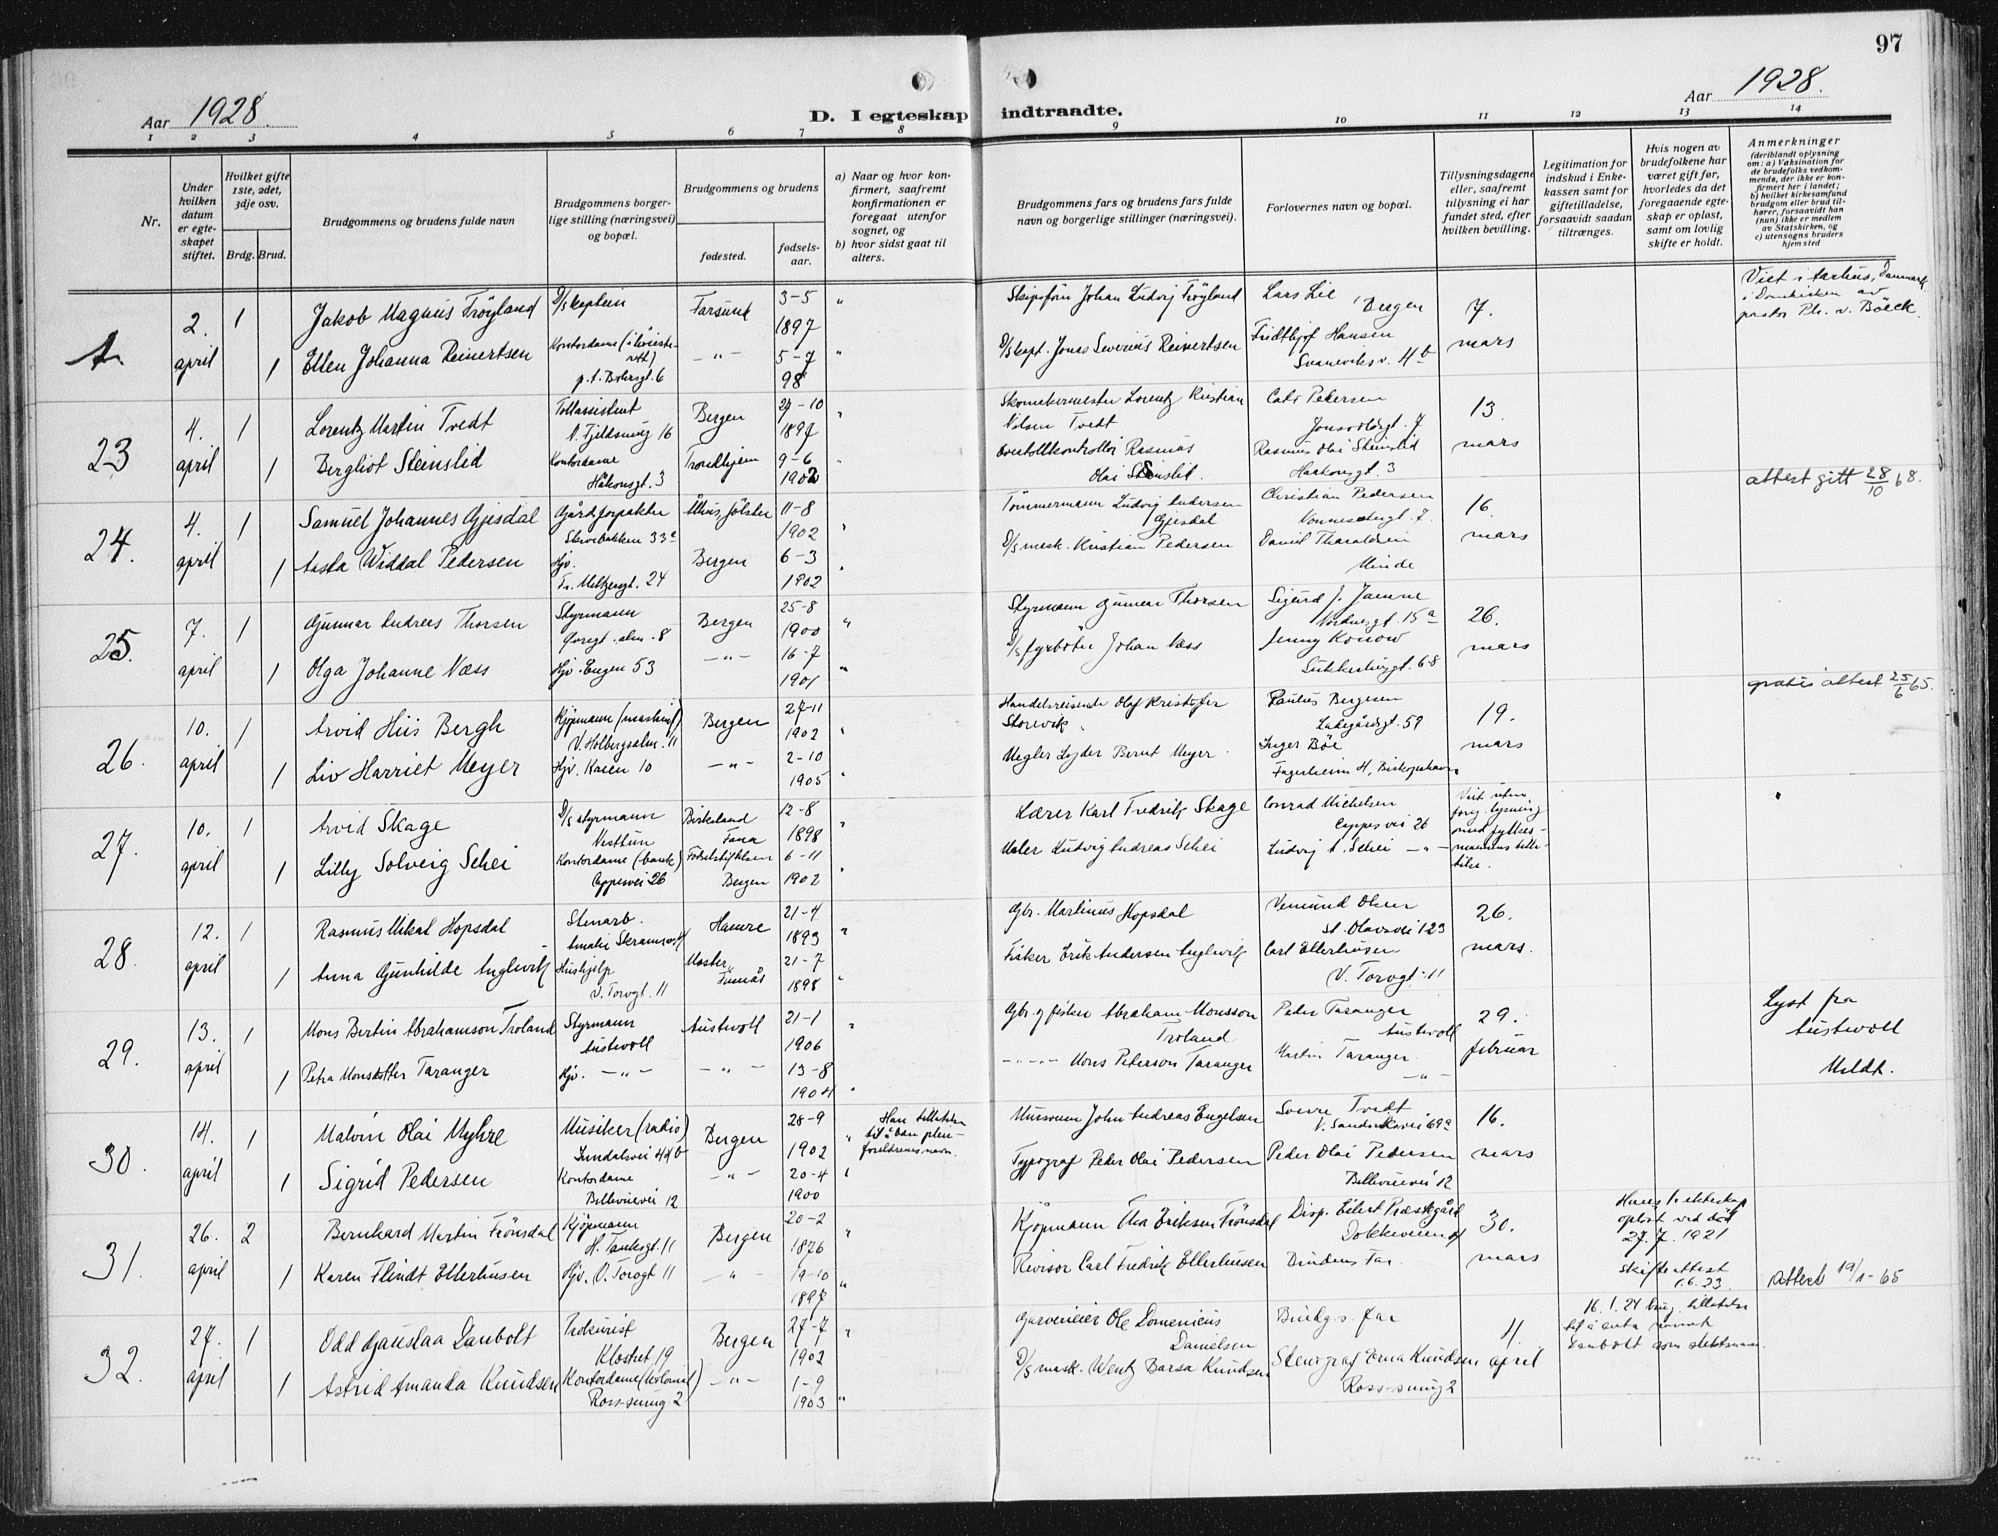 97
Aar 1928.
D. I egteskap indtraadte.
Aar 1928.
1 2 3 4 5 6 7 8 9 10 11 12 13 14
Nr.
Under hvilken datum er egteskapet stiftet.
Hvilket gifte 1ste, 2det, 3dje osv.
Brdg. Brud.
Brudgommens og brudens fulde navn
Brudgommens og brudens borgerlige stilling (næringsvei) og bopæl.
Brudgommens og brudens
fødested.
fødselsaar.
a) Naar og hvor konfirmert, saafremt konfirmationen er foregaat utenfor sognet, og
b) hvor sidst gaat til alters.
Brudgommens fars og brudens fars fulde navn og borgerlige stillinger (næringsvei).
Forlovernes navn og bopæl.
Tillysningsdagene eller, saafremt tillysning ei har fundet sted, efter hvilken bevilling.
Legitimation for indskud i Enkekassen samt for giftetilladelse, forsaavidt saadan tiltrænges.
Hvis nogen av brudefolkene har været gift før, hvorledes da det foregaaende egteskap er opløst, samt om lovlig skifte er holdt.
Anmerkninger
(deriblandt oplysning om: a) Vaksination for de brudefolks vedkommende, der ikke er konfirmert her i landet; b) hvilket kirkesamfund brudgom eller brud tilhører, forsaavidt han (hun) ikke er medlem av Statskirken, og c) utensogns bruders hjemsted
A.
2. april 1 Jakob Magnus Tröyland D/skaptein Farsund 3-5 1897 " Skipsförer Johan Ludvig Tröyland Lars Lie, Bergen 7. mars
Viet i Aarhus, Danmark i Domkirken av pastor Ph. v. Böeck.
1 Ellen Johanna Reinertsen Kontordame p.t. Bohrsgt. 6 -"- 5-7 98 " D/skapt. Jonas Severius Reinertsen Fridthjof Hansen Svaneviksv. 4b
23
4. april 1 Lorentz Martin Tvedt Tollassistent N. Fjeldsmug 16 Bergen 27-10 1897 " Skomakermester Lorentz Kristian Nilsen Tvedt Cato Pedersen Jonsvoldsgt. 7 13. mars
1 Bergliot Steinslid Kontordame Håkonsgt. 3 Trondhjem 9-6 1902 " overtollkontrollör Rasmus Olai Steinslid. Rasmus Olai Steinslid Haakonsgt. 3
24.
4. april 1 Samuel Johannes Gjesdal Gårdforpakter Skivebakken 33a Ålhus, Jölster 11-8 1902 " Tömmermann Ludvig Andersen Gjesdal Christian Pedersen 16. mars
attest gitt 28/10 68.
1 Aasta Widdal Pedersen Hjv. Fr. Meltzersgt. 24 Bergen 6-3 1902 " D/s mask. Kristian Pedersen Daniel Tharaldsen Minde
25.
7. april 1 Gunnar Andreas Thorsen Styrmann 8 Bergen 25-8 1900 " Styrmann Gunnar Thorsen Sigurd J. Jamne 15a 26. mars
1 Olga Johanne Næss Hjv. Engen 53 -"- 16-7 1901 " D/s fyrböter Johan Næss Jenny Konow Sukkerhusgt. 68
26.
10. april 1 Arvid Hiis Bergh Kjöpmann (maskin) V. Holbergsalm. 11 Bergen 27-11 1902 " Handelsreisende Olaf Kristofer Storevik. Paulus Bergesen Ladegårdsgt. 59 19. mars
gratis attest 25/6 65.
1 Liv Harriet Meyer Hjv. Kaien 10 -"- 2-10 1905 " Megler Lyder Bernt Meyer. Inger Böe Fagerheim H, Biskopshavn
27.
10. april 1 Arvid Skage D/s styrmann Nesttun Birkeland Fana 12-8 1898 " Lærer Karl Fredrik Skage Conrad Michelsen Cappesvei 26
Viet uten foreg. lysning med fylkesmannens tillatelse.
1 Lilly Solveig Schei Kontordame (bank) Cappesvei 26 Födselstiftelsen Bergen 6-11 1902 " Maler Ludvig Andreas Schei Ludvig A. Schei -"-
28
12. april 1 Rasmus Mikal Hopsdal Stenarb. Amalie Skramsvei Hamre 21-4 1893 " Gbr. Martinus Hopsdal Vemund Olsen St. Olavsvei 123 26. mars.
1 Anna Gunhilde Anglevik Hushjelp V. Torvgt. 11 Moster, Finnås 21-7 1898 " Fisker Erik Andersen Anglevik Carl Ellerhusen V. Torvgt. 11
29.
13. april 1 Mons Bertin Abrahamson Troland Styrmann Austevoll Austevoll 21-1 1906 " Gbr. og fisker Abraham Monsson Troland Peder Taranger Austevoll 29. februar
Lyst fra Austevoll
Meldt.
1 Petra Monsdotter Taranger Hjv. -"- -"- 13-8 1904 " -"-"- Mons Peterson Taranger Martin Taranger. -"-
30.
14. april 1 Malvin Olai Myhre Musiker (radio) Lundalsvei 44b Bergen 28-9 1902 " Har tillatelse til å bære pleieforeldrenes navn. Murmann John Andreas Engelsen Sverre Tvedt V. Sandviksvei 69a 16. mars
1 Sigrid Pedersen Kontordame Bellevuevei 12 -"- 20-4 1900 " Typograf Peder Olai Pedersen Peder Olai Pedersen Bellevuevei 12
31.
26. april 2 Bernhard Martin Frönsdal Kjöpmann H. Tanksgt. 11 Bergen 20-2 1876 " Kjöpmann Ole Eriksen Frönsdal Disp. Eilert Præstgård 30. mars
Hans 1. ekteskap oplöst ved död 27.7.1921 skifteattest 1.6.23
Attest 19/1-65
1 Karen Flindt Ellerhusen Hjv. V. Torvgt 11 -"- 19-10 1897 " Revisor Carl Fredrik Ellerhusen Brudens Far.
32.
27. april 1 Odd Gjauslaa Danbolt Prokurist Klostret 19 Bergen 27-7 1902 " Garverieier Ole Domenicus Danielsen Brudg.s far 4. april
16.1.24 bevg. tillatelse til å anta navnet Danbolt som slektsnavn.
1 Astrid Amanda Knudsen Kontordame (kolonial) Ross-smug 2 -"- 1-9 1903 " D/s mask. Wentz Barsa Knudsen Stenograf Erna Knudsen Ross-smug 2